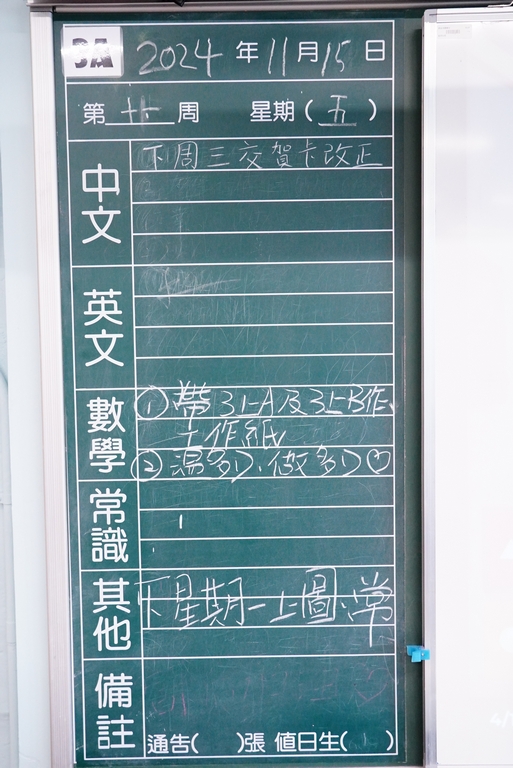 3A 2024年11月15日
第十一周 星期(五)
中文 下周三交賀卡改正
英文
數學 ①帶3上A及3上B作、
工作紙
②溫多D、做多D♡
常識
其他 下星期一上圖、常
備註
通告( )張 值日生( )